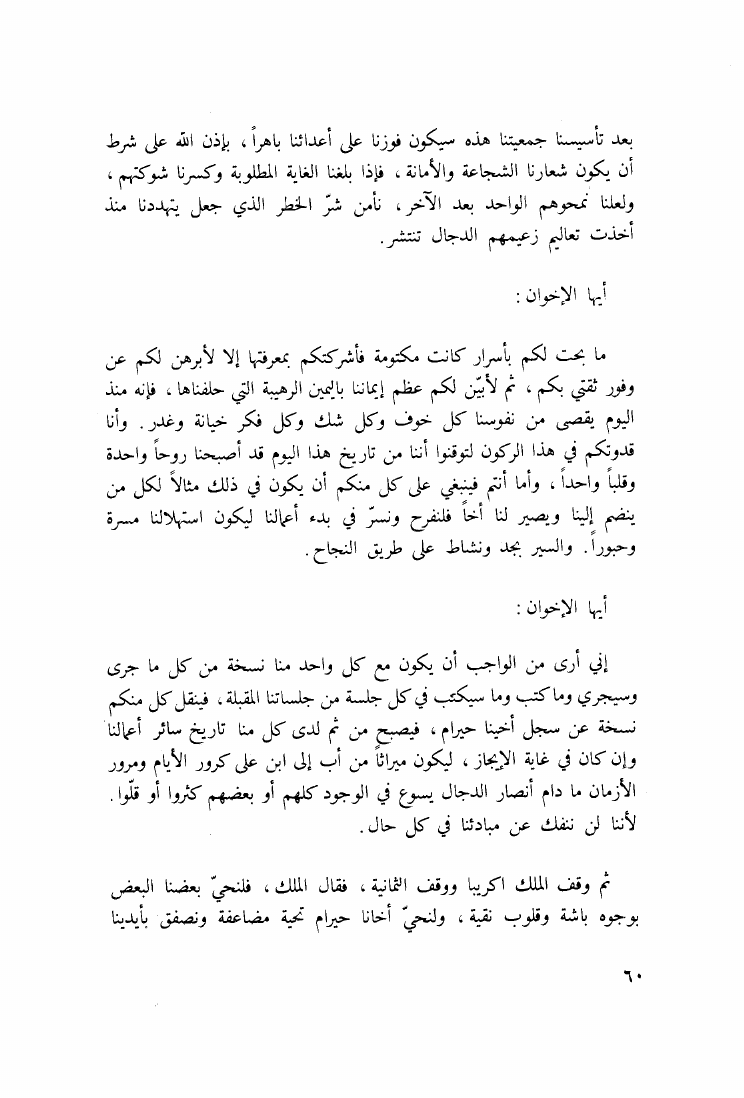 بعد تأسيسنا جمعيتنا هذه سيكون فوزنا على أعدائنا باهراً ، بإذن الله على شرط
أن يكون شعارنا الشجاعة والأمانة ، فإذا بلغنا الغاية المطلوبة وكسرنا شوكتهم ،
ولعلنا نمحوهم الواحد بعد الآخر ، نأمن شرّ الخطر الذي جعل يتهددنا منذ
أخذت تعاليم زعيمهم الدجال تنتشر .
أيها الإخوان :
ما بحت لكم بأسرار كانت مكتومة فأشركتكم بمعرفتها إلا لأبرهن لكم عن
وفور ثقتي بكم ، ثم لأبيّن لكم عظم إيماننا باليمين الرهيبة التي حلفناها ، فإنه منذ
اليوم يقصى من نفوسنا كل خوف وكل شك وكل فكر خيانة وغدر . وأنا
قدوتكم في هذا الركون لتوقنوا أننا من تاريخ هذا اليوم قد أصبحنا روحاً واحدة
وقلباً واحداً ، وأما أنتم فينبغي على كل منكم أن يكون في ذلك مثالاً لكل من
ينضم إلينا ويصير لنا أخاً فلنفرح ونسرّ في بدء أعمالنا ليكون استهلالنا مسرة
وحبوراً . والسير بجد ونشاط على طريق النجاح .
أيها الإخوان :
إني أرى من الواجب أن يكون مع كل واحد منا نسخة من كل ما جرى
وسيجري وما كتب وما سيكتب في كل جلسة من جلساتنا المقبلة ، فينقل كل منكم
نسخة عن سجل أخينا حيرام ، فيصبح من ثم لدى كل منا تاريخ سائر أعمالنا
وإن كان في غاية الإيجاز ، ليكون ميراثاً من أب إلى ابن على كرور الأيام ومرور
الأزمان ما دام أنصار الدجال يسوع في الوجود كلهم أو بعضهم كثروا أو قلّوا .
لأننا لن ننفك عن مبادئنا في كل حال .
ثم وقف الملك اكريبا ووقف الثمانية ، فقال الملك ، فلنحيّ بعضنا البعض
بوجوه باشة وقلوب نقية ، ولنحيّ أخانا حيرام تحية مضاعفة ونصفق بأيدينا
٦٠